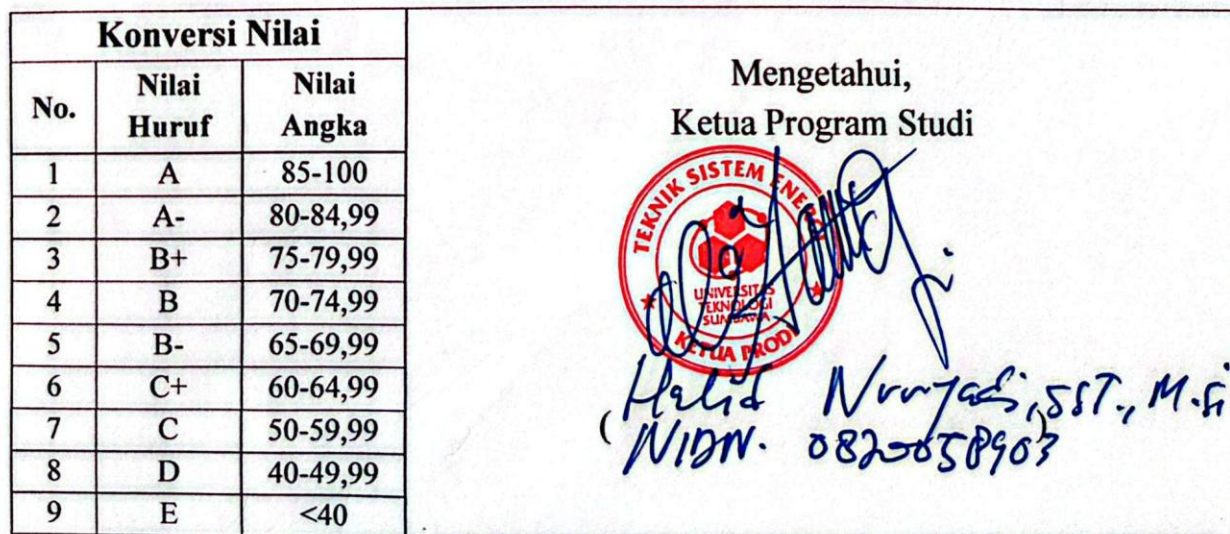 Konversi Nilai
No. Nilai Huruf Nilai Angka
1 A 85-100
2 A- 80-84,99
3 B+ 75-79,99
4 B 70-74,99
5 B- 65-69,99
6 C+ 60-64,99
7 C 50-59,99
8 D 40-49,99
9 E <40
Mengetahui,
Ketua Program Studi
TEKNIK SISTEM ENERGI
UNIVERSITAS
TEKNOLOGI
SUMBAWA
KETUA PRODI
Halid Nuryadi, SST., M.Si
( NIDN. 0820058903 )